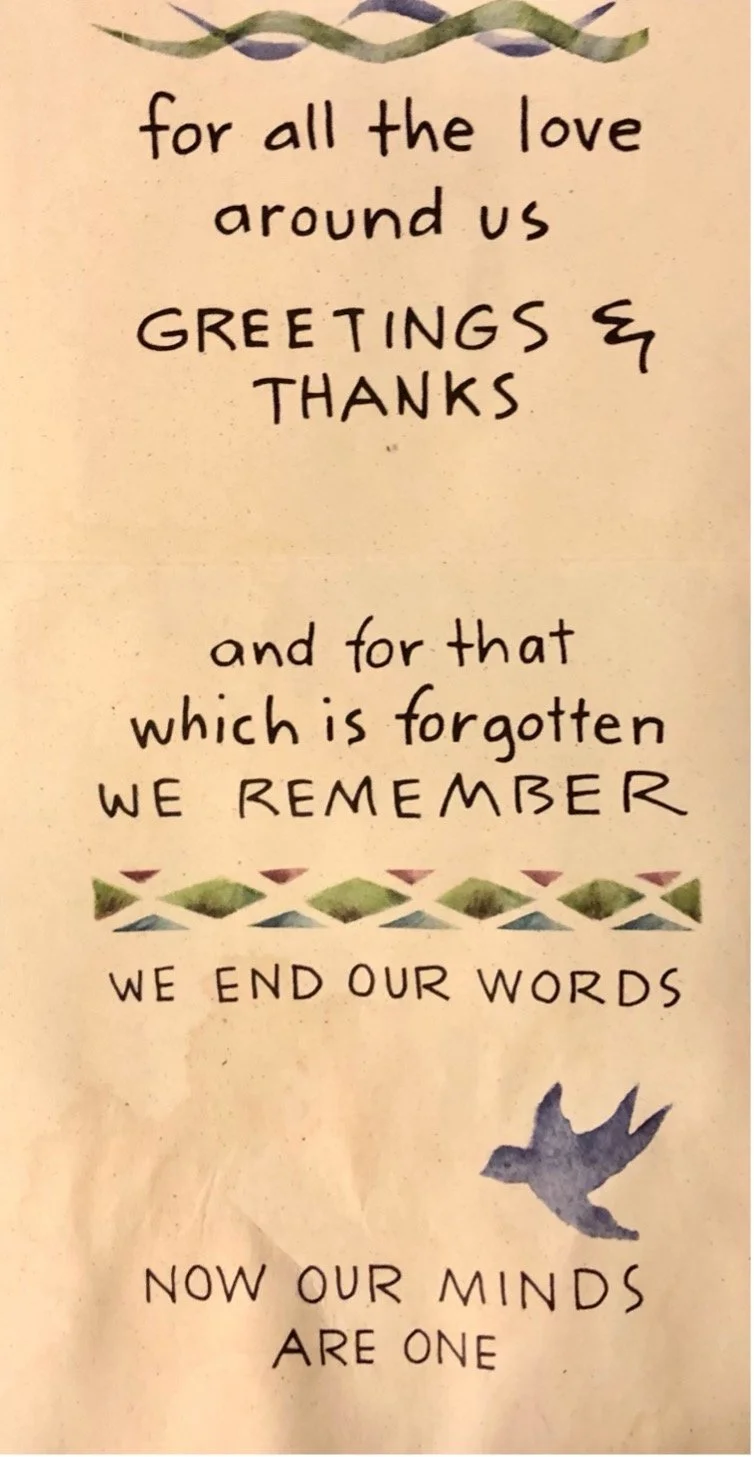 for all the love
around us
GREETINGS &
THANKS
and for that
which is forgotten
WE REMEMBER
WE END OUR WORDS
NOW OUR MINDS
ARE ONE